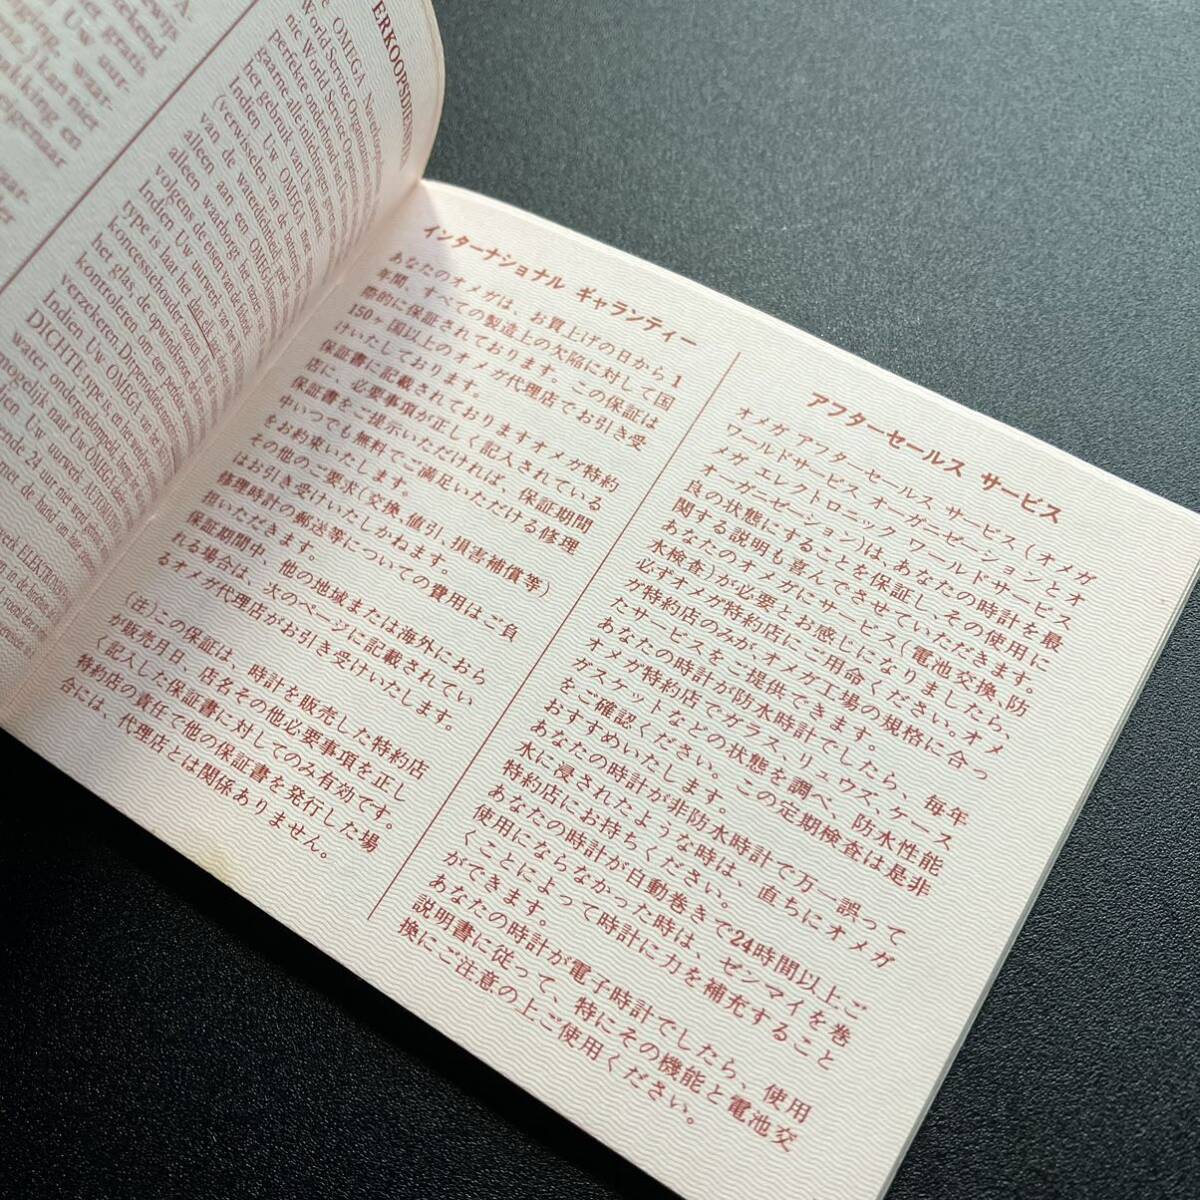 ERKOOPSDIENST
OMEGA
World Service Organisation
nic World Service Organisation
Indien Uw OMEGA
(verwisselen van de batterij,
van de waterdichtheid,
alleen aan een OMEGA
alleen waarborgt het
volgens de eisen van de fabriek.
Indien Uw uurwerk van het
type is laat het dan, elk jaar
koncessiehouder nazien,
het glas, de opwindkroon,
kontroleren, om een perfekte
verzekeren. Dit periodieke
Indien Uw OMEGA van
DICHTE type is, en het
water ondergedompeld,
mogelijk naar Uw OMEGA
Indien Uw uurwerk
24 uur niet werd
met de hand om haar
インターナショナル ギャランティー
あなたのオメガは、お買上げの日から1
年間、すべての製造上の欠陥に対して国
際的に保証されております。この保証は
150ヶ国以上のオメガ代理店でお引き受
けいたしております。
保証書に記載されておりますオメガ特約
店に、必要事項が正しく記入されている
保証書をご提示いただければ、保証期間
中いつでも無料でご満足いただける修理
をお約束いたします。
その他のご要求(交換、値引、損害補償等)
はお引き受けいたしかねます。
修理時計の郵送等についての費用はご負
担いただきます。
保証期間中、他の地域または海外におら
れる場合は、次のページに記載されてい
るオメガ代理店がお引き受けいたします。
(注)この保証は、時計を販売した特約店
が販売月日、店名その他必要事項を正し
く記入した保証書に対してのみ有効です。
特約店の責任で他の保証書を発行した場
合には、代理店とは関係ありません。
アフターセールス サービス
オメガ アフターセールス サービス(オメガ
ワールドサービス オーガニゼーションとオ
メガ エレクトロニック ワールドサービス
オーガニゼーション)は、あなたの時計を最
良の状態にすることを保証し、その使用に
関する説明も喜んでさせていただきます。
あなたのオメガにサービス(電池交換、防
水検査)が必要とお感じになりましたら、
必ずオメガ特約店にご用命ください。オメ
ガ特約店のみが、オメガ工場の規格に合っ
たサービスをご提供できます。
あなたの時計が防水時計でしたら、毎年
オメガ特約店でガラス、リュウズ、ケース
ガスケットなどの状態を調べ、防水性能
をご確認ください。この定期検査は是非
おすすめいたします。
あなたの時計が非防水時計で万一誤って
水に浸されたような時は、直ちにオメガ
特約店にお持ちください。
あなたの時計が自動巻きで24時間以上ご
使用にならなかった時は、ゼンマイを巻
くことによって時計に力を補充すること
ができます。
あなたの時計が電子時計でしたら、使用
説明書に従って、特にその機能と電池交
換にご注意の上ご使用ください。